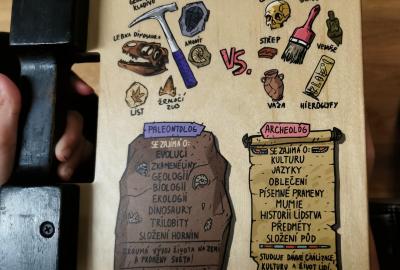 KLADÍVO
LEBKA DINOSAURA
AMONIT
LIST
ŽRALOČÍ
ZUB
VS.
STŘEP
VENUŠE
VÁZA
HIEROGLYFY
PALEONTOLOG
SE ZAJÍMÁ O:
EVOLUCI
ZKAMENĚLINY
GEOLOGII
BIOLOGII
EKOLOGII
DINOSAURY
TRILOBITY
SLOŽENÍ HORNIN
ZKOUMÁ VÝVOJ ŽIVOTA NA ZEMI
A PROMĚNY SVĚTA!
ARCHEOLOG
SE ZAJÍMÁ O:
KULTURU
JAZYKY
OBLEČENÍ
PÍSEMNÉ PRAMENY
MUMIE
HISTORII LIDSTVA
PŘEDMĚTY
SLOŽENÍ PŮD
STUDUJE DÁVNÉ CIVILIZACE,
KULTURY A ŽIVOT LIDÍ